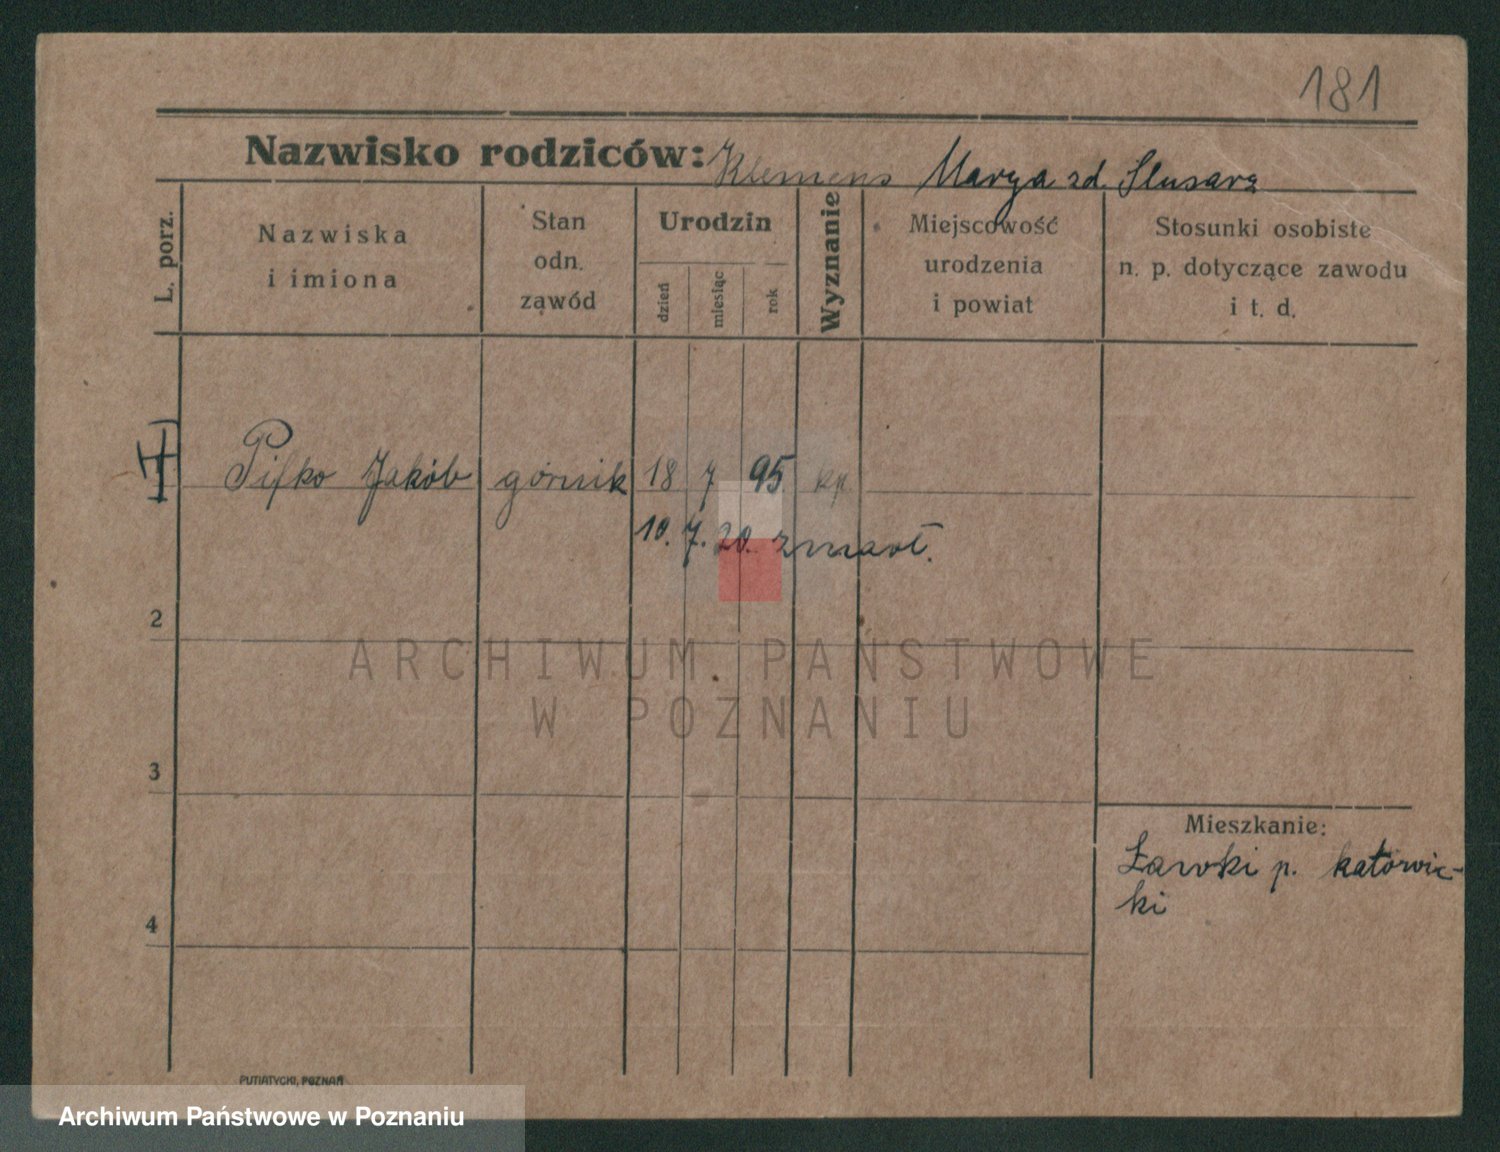 181
Nazwisko rodziców: Klemens Marya zd. Slusarz
L. porz.
Nazwiska
i imiona
Stan
odn.
ząwód
Urodzin
dzień
miesiąc
rok
Wyznanie
Miejscowość
urodzenia
i powiat
Stosunki osobiste
n. p. dotyczące zawodu
i t. d.
Pifko Jakób górnik 18 7 95 kp
10. 7. 20. zmarł.
2
ARCHIWUM PAŃSTWOWE
W POZNANIU
3
Mieszkanie:
Ławki p. katowic-
ki
4
PUTIATYCKI, POZNAŃ
Archiwum Państwowe w Poznaniu